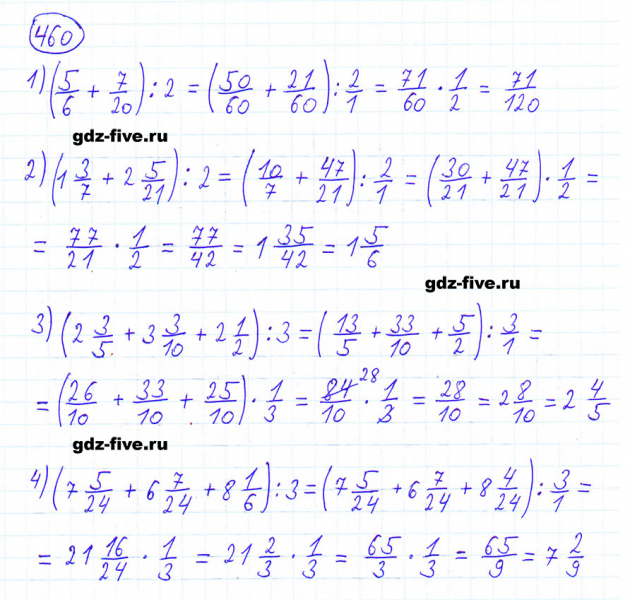 460
1) (5/6 + 7/20) : 2 = (50/60 + 21/60) : 2/1 = 71/60 · 1/2 = 71/120
gdz-five.ru
2) (1 3/7 + 2 5/21) : 2 = (10/7 + 47/21) : 2/1 = (30/21 + 47/21) · 1/2 =
= 77/21 · 1/2 = 77/42 = 1 35/42 = 1 5/6
gdz-five.ru
3) (2 3/5 + 3 3/10 + 2 1/2) : 3 = (13/5 + 33/10 + 5/2) : 3/1 =
= (26/10 + 33/10 + 25/10) · 1/3 = 84/10 28 · 1/3 = 28/10 = 2 8/10 = 2 4/5
gdz-five.ru
4) (7 5/24 + 6 7/24 + 8 1/6) : 3 = (7 5/24 + 6 7/24 + 8 4/24) : 3/1 =
= 21 16/24 · 1/3 = 21 2/3 · 1/3 = 65/3 · 1/3 = 65/9 = 7 2/9